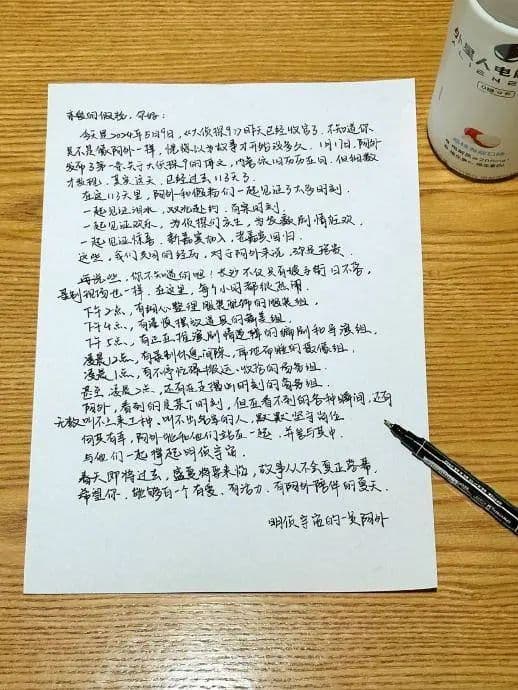 亲爱的侦探，你好：
今天是2024年5月9日，《大侦探9》昨天已经收官了，不知道你
是不是像阿外一样，恍惚以为故事才开始没多久。1月17日，阿外
发布了第一条关于大侦探9的博文，内容依旧历历在目，但细数
才发现，其实这天，已经过去113天了。
在这113天里，阿外和侦探们一起见证了太多时刻。
一起见证泪水，双北赴约，百案时刻。
一起见证欢乐，为侦探们庆生，为发散剧情狂欢
一起见证惊喜，新嘉宾加入，老嘉宾回归
这些，我们共同的经历，对于阿外来说，弥足珍贵
再说些，你不知道的吧！长沙不仅只有坡子街日不落，
录制现场也一样，在这里，每个小时都很热闹
下午2点，有细心整理服装配饰的服装组，
下午4点，有准备摆放道具的
下午5点，有正在推演剧情逻辑的编剧和导演组，
凌晨12点，有录制休息间隙，耳地而睡的摄像组，
凌晨1点，有不停忙碌搬运、收拾的商务组
甚至凌晨2点，还有在
阿外，看到的是某个时刻，但在看不到的各种瞬间，还有
无数叫不上来工种，叫不出名字的人，默默坚守岗位
何其有幸，阿外能和他们站在一起，并参与其中，
与他们一起撑起明侦宇宙。
春天即将过去，盛夏将要来临，故事从不会真正落幕
希望你，能够有一个有爱、有活力、有阿外陪伴的夏天
明侦宇宙的一员阿外
外星人电
ALIENE
0糖